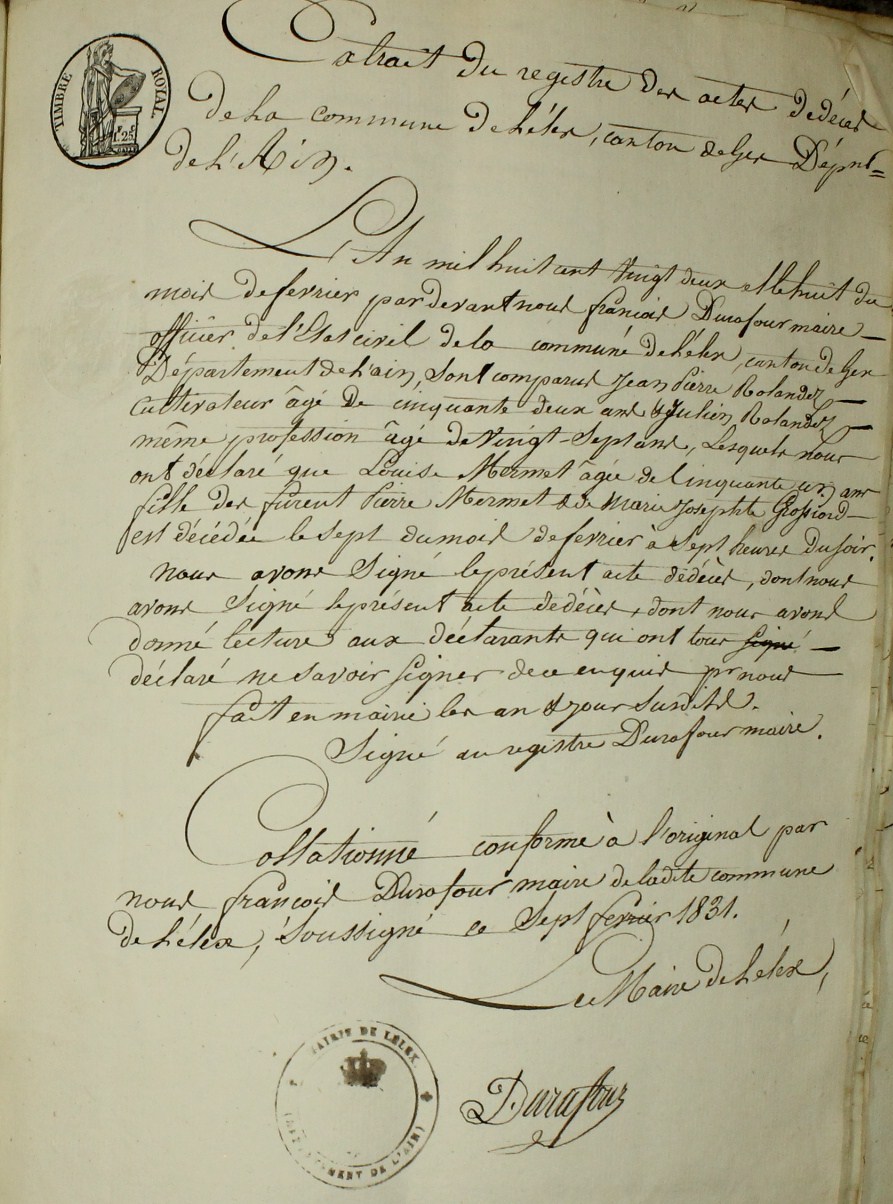 TIMBRE ROYAL
1.25
Extrait du registre des actes de décès
de la commune de Lélex, canton de Gex Dépmt=
de l'Ain.
L'An mil huit cent vingt deux et le huit du
mois de fevrier par devant nous françois Durafour maire
officier de l'Etat civil de la commune de Lélex, canton de Gex
Département de l'ain, sont comparus Jean Pierre Rolandez
Cultivateur âgé de cinquante deux ans & Julien Rolandez
même profession âgé de vingt-sept ans, Lesquels nous
ont déclaré que Louise Mermet âgée de Cinquante un ans
fille des furent Pierre Mermet & de Marie Josephte Grossiord
est décédée le sept du mois de fevrier à sept heures du soir.
nous avons Signé le présent acte dédécès, dont nous
avons Signé le présent acte de décès, dont nous avons
donné lecture aux déclarants qui ont tous signé
déclaré ne savoir signer de ce enquis pr nous
fait en mairie les an & jour susdits.
Signé au registre Durafour maire.
Collationné conforme à l'original par
nous françois Durafour maire de ladite commune
de Lélex, soussigné ce Sept fevrier 1831.
Le Maire de Lélex,
Durafour
MAIRIE DE LELEX
(DEPARTEMENT DE L'AIN)